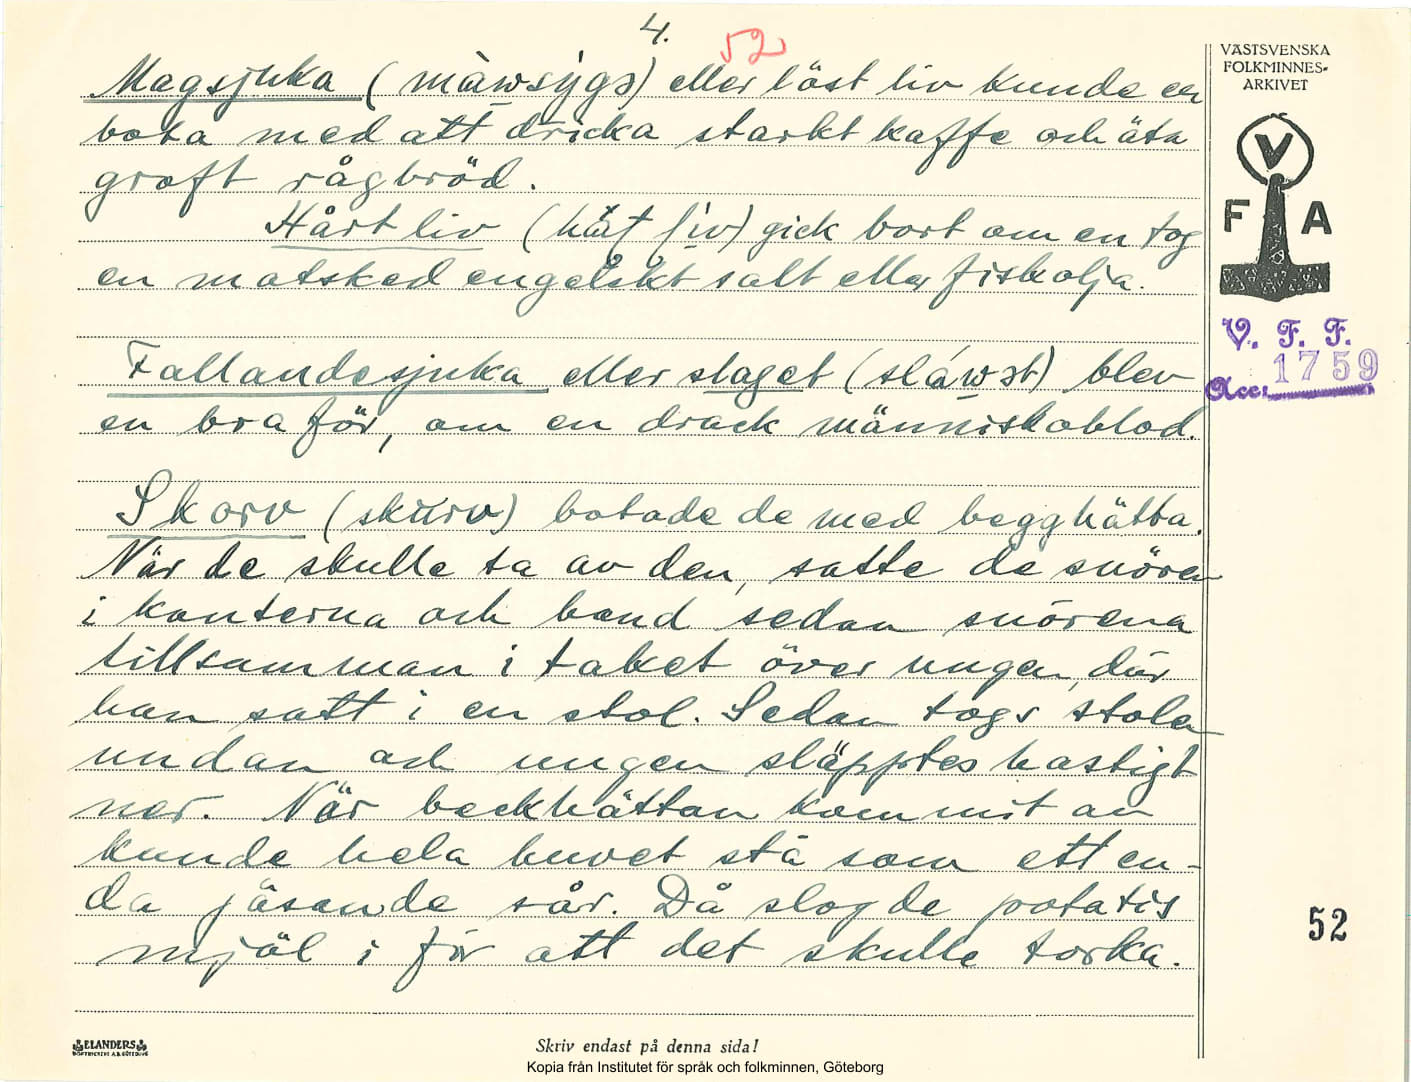 4.
52
Magsjuka (màwsÿgə) eller löst liv kunde en
bota med att dricka starkt kaffe och äta
groft rågbröd.
Hårt liv gick bort om en tog
en matsked engelskt salt eller fiskolja.
Fallandesjuka eller slaget (sláwət) blev
en bra för, om en drack människoblod.
Skorv (skurv) botade de med begghätta.
När de skulle ta av den, satte de snören
i kanterna och band sedan snörena
tillsamman i taket över ungen, där
han satt i en stol. Sedan togs stolen
undan och ungen släpptes hastigt
ner. När beckhättan kommit av
kunde hela huvet stå som ett en-
da jäsande sår. Då slog de potatis
mjöl i för att det skulle torka.
VÄSTSVENSKA
FOLKMINNES-
ARKIVET
V
F A
V. F. F.
Acc. 1759
52
ELANDERS
BOKTRYCKERI A.B. GÖTEBORG
Skriv endast på denna sida!
Kopia från Institutet för språk och folkminnen, Göteborg